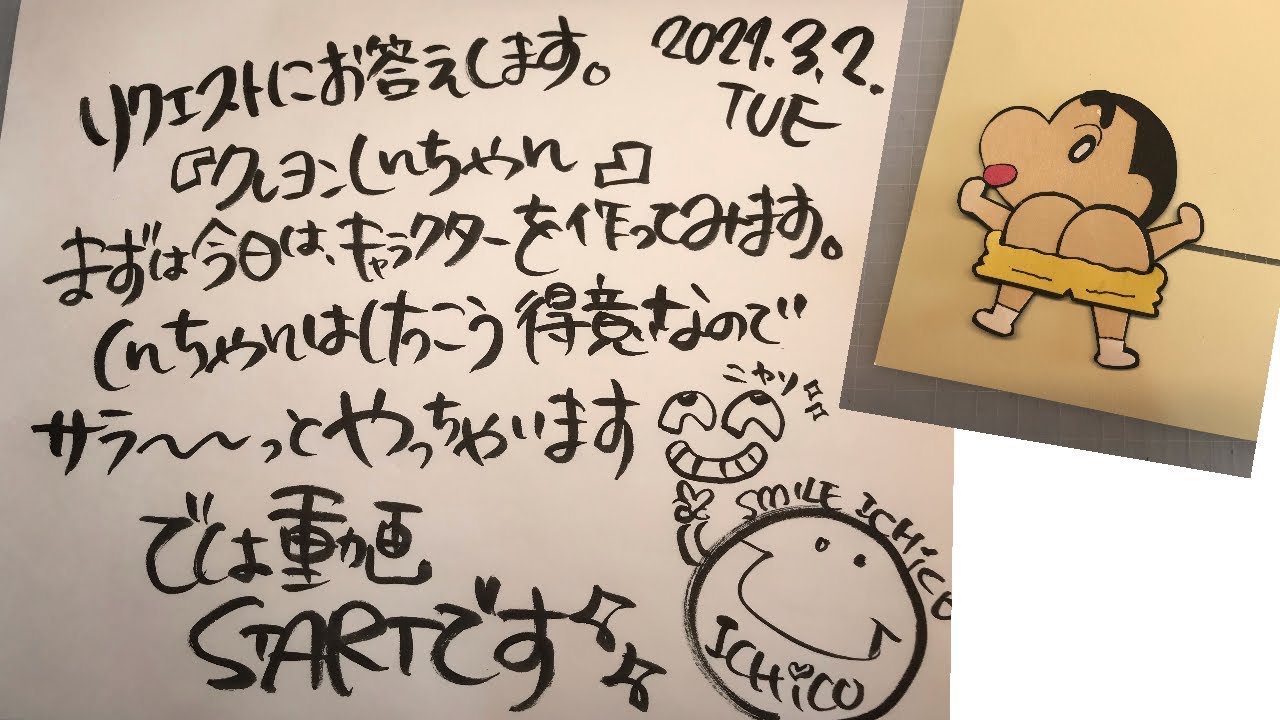 リクエストにお答えします。
2021.3.2.
TUE
『クレヨンしんちゃん』
まずは今日は、キャラクターを作ってみます。
しんちゃんはけっこう得意なので
サラ〜〜っとやっちゃいます
ニヤリ
では動画
STARTです
SMILE ICHiCO
ICHiCO